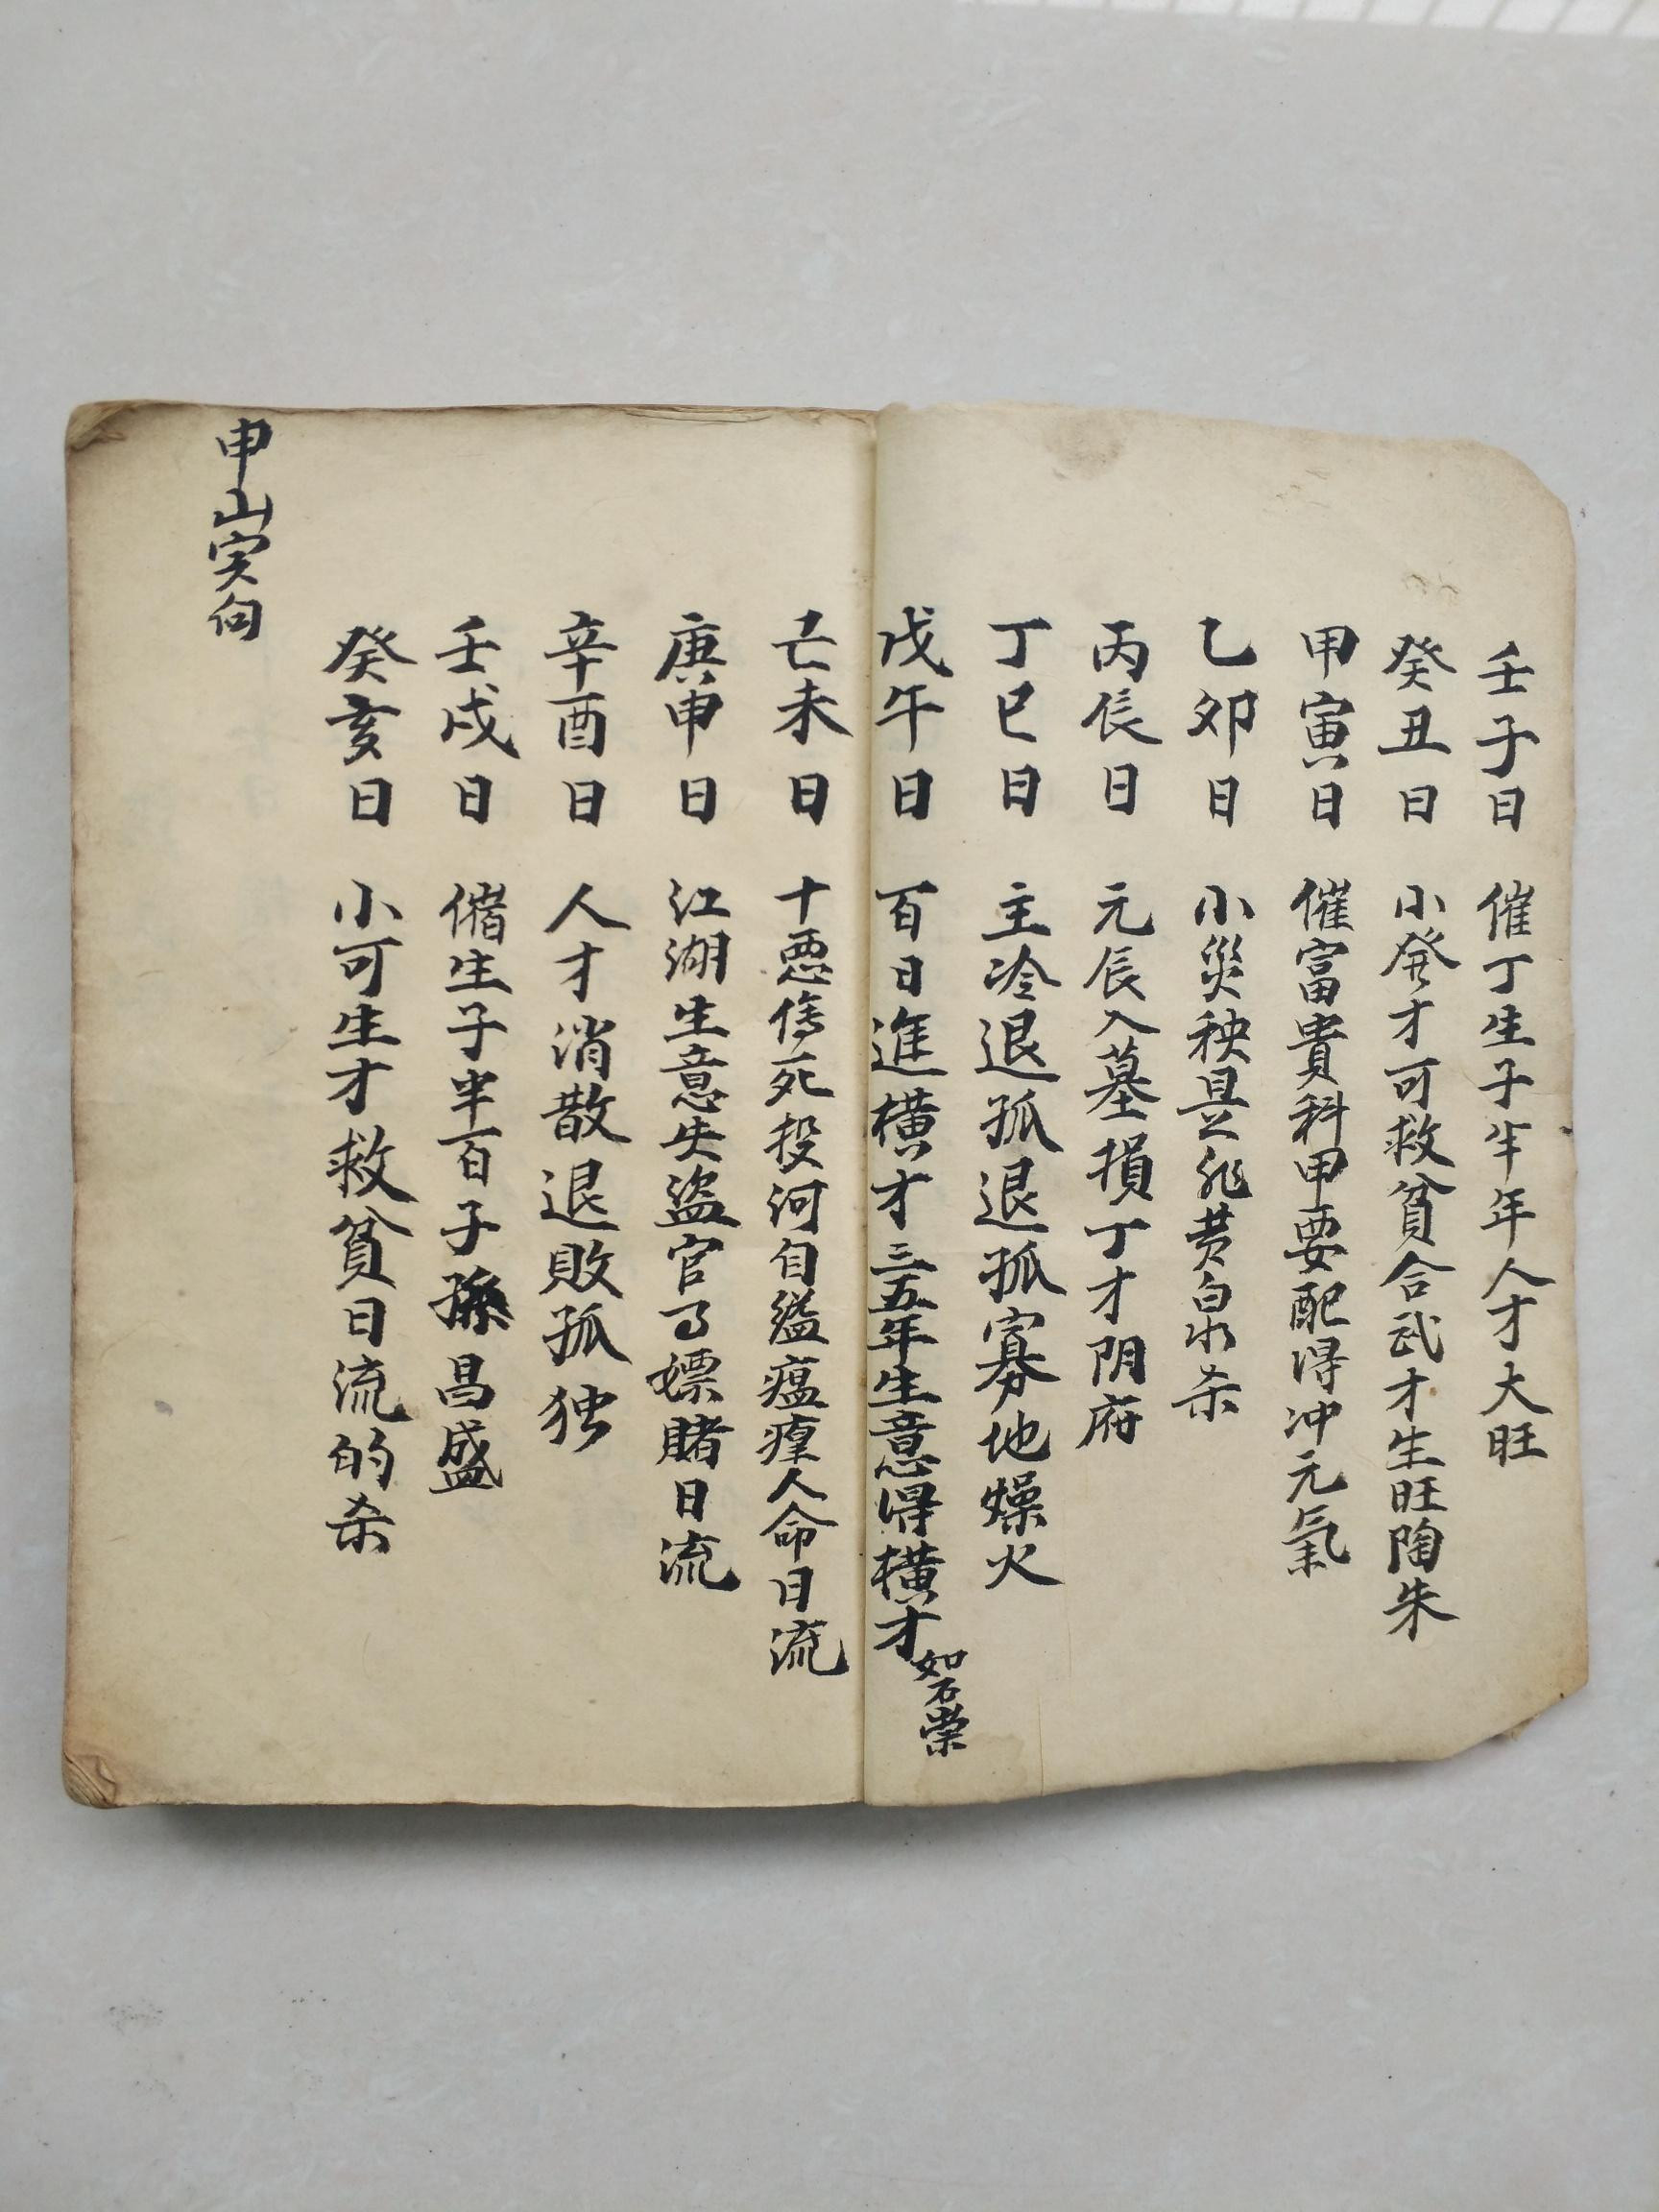 壬子日 催丁生子半年人才大旺
癸丑日 小發才可救貧合武才生旺陶朱
甲寅日 催富貴科甲要配得冲元氣
乙卯日 小災秧是非黄泉水杀
丙辰日 元辰入墓損丁才阴府
丁巳日 主冷退孤退孤寡地燥火
戊午日 百日進横才三五年生意得横才如石崇
己未日 十悪傷死投河自縊瘟瘴人命日流
庚申日 江湖生意失盗官司嫖賭日流
辛酉日 人才消散退敗孤独
壬戌日 催生子半百子孫昌盛
癸亥日 小可生才救貧日流的杀
申山寅向